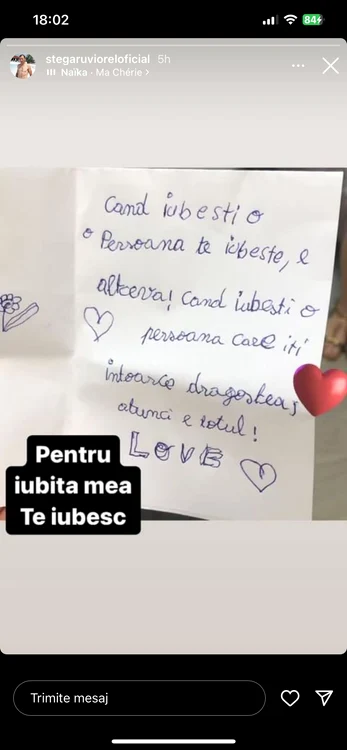 18:02
84
stegaruvioreloficial 5h
Naïka · Ma Chérie >
Cand iubesti o
o Persoana te iubeste, e
altceva! Cand iubesti o
persoana care iti
intoarce dragostea,
atunci e totul!
LOVE
Pentru
iubita mea
Te iubesc
Trimite mesaj